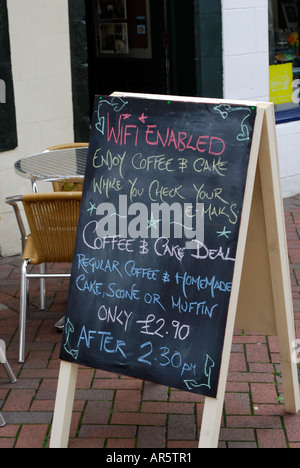 WiFi ENABLED
ENJOY COFFEE & CAKE
WHILE YOU CHECK YOUR
E-MAILS
COFFEE & CAKE DEAL
REGULAR COFFEE & HOMEMADE
CAKE, SCONE OR MUFFIN
ONLY £2.90
AFTER 2.30 PM
alamy
Image ID: ARTF8X
www.alamy.com